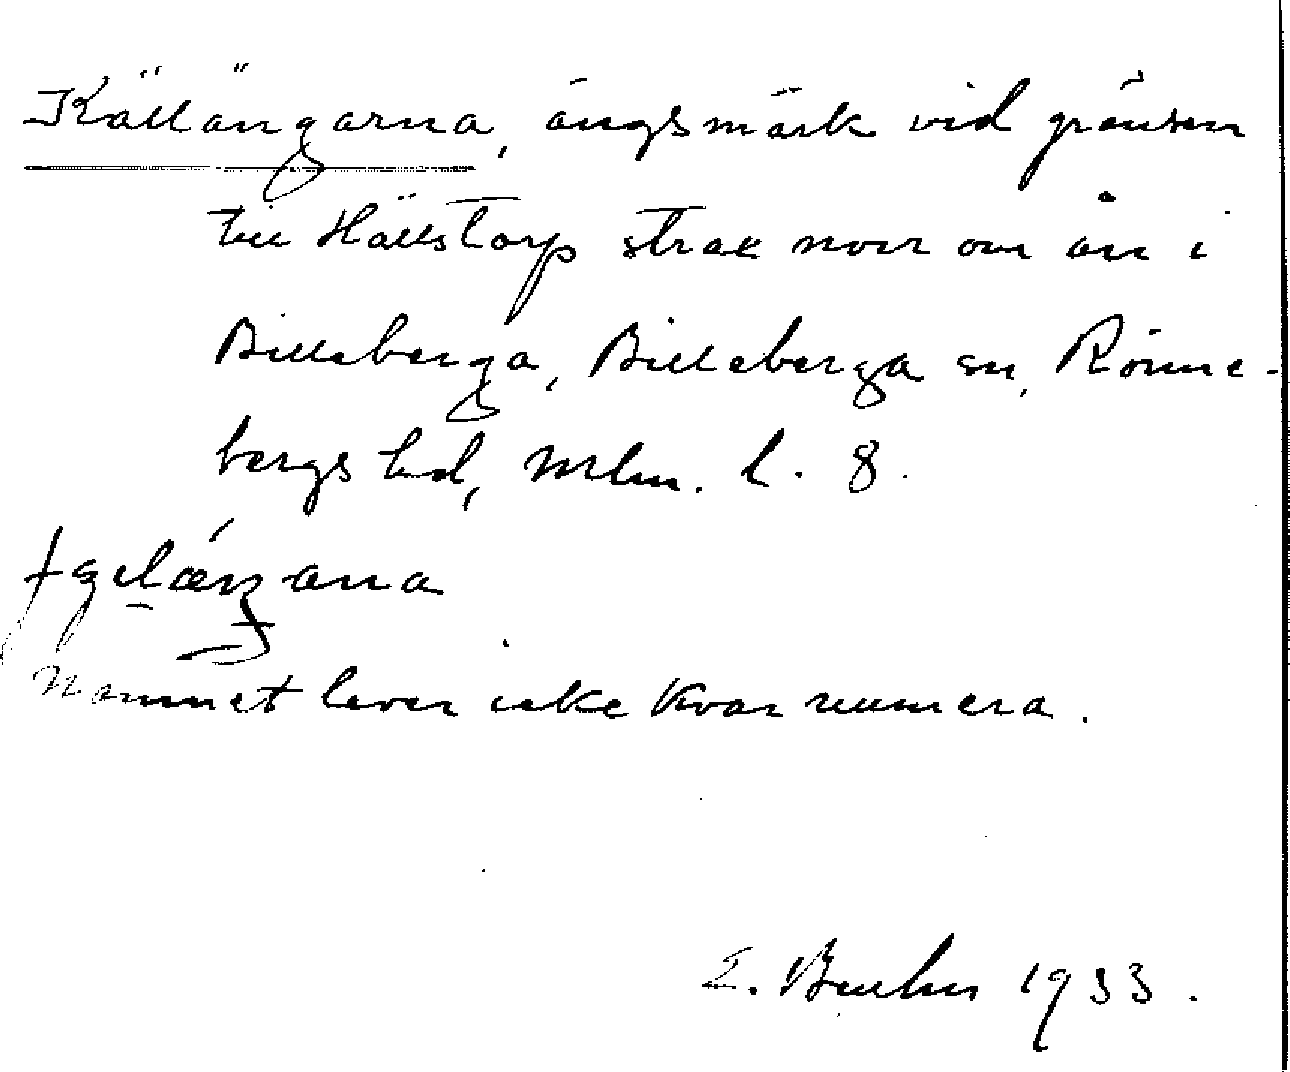 Källängarna, ängsmark vid gränsen
till Hällstorp strax norr om ån i
Billeberga, Billeberga sn, Rönne-
bergs hd, Mlm. l. 8.
Namnet lever icke kvar numera.
E. Bruhn 1933.